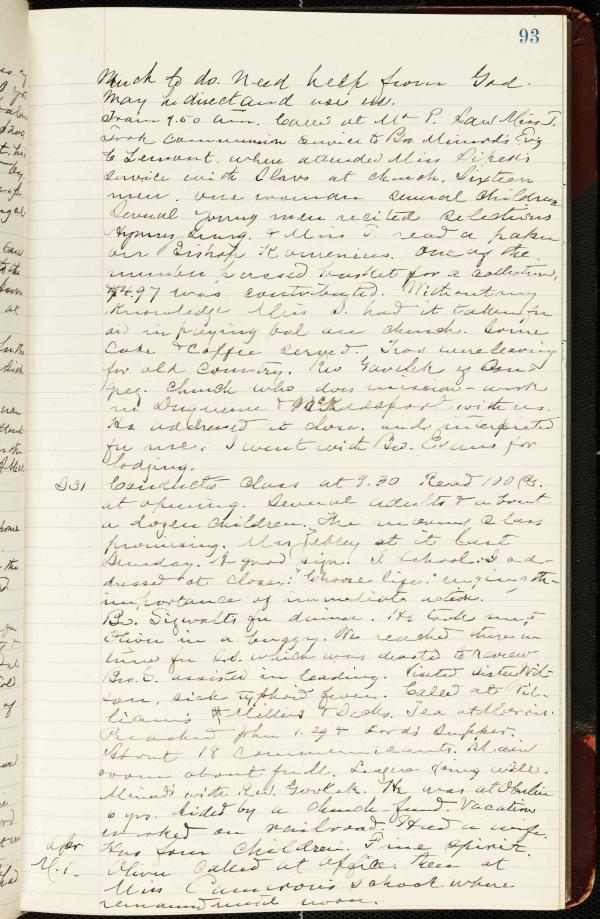 93
Much to do. Need help from God.
May he direct and use us.
Train 9.50 am. Called at Mr P. Saw Miss J.
Took communion service to Bro. Minards Evg
to Lemont. where attended Miss
service with Slavs at church. Sixteen
men. one woman several children
Several young men recited selections
Hymns sung. & Miss J. read a paper
on Bishop Komenius. One of the
members passed basket for a collection,
$4.97 was contributed. Without my
knowledge Miss J. had it taken for
aid in paying bal on church. Some
Cake & Coffee served. Two were leaving
for old country. Rev Gavlik of Con-
greg. Church who does mission-work
in Duquesne & McKeesport with us.
He addressed at close. and interpreted
for me. I went with Bro. Evans for
lodging.
S 31 Conducts Class at 9.30 Read 100 Ps.
at opening. Several adults & about
a dozen children. The morning Class
promising. Mrs at it last
Sunday. A good sign. S. School. I ad-
dressed at close. "Choose life." urging the
importance of immediate action.
Bro. Sigwalts for dinner. He took me &
Oliver in a buggy. We reached there in
time for S.S. which was devoted to review
Bro. E. assisted in leading. Visited sister Wil-
son, sick typhoid fever. Called at Wil-
liams Millers & Docks. Tea at Morris.
Preached John 1.29 & Lord's Supper.
About 18 communicants. Main
room about full. League doing well.
Minards with Rev. Gavlik. He was at Oberlin
6 yrs. Aided by a church fund. Vacation
worked on railroad. Had a wife.
Has four children. Fine spirit.
Apr
M. 1. Oliver called at office. then at
Miss Camerons school where
remained until noon.